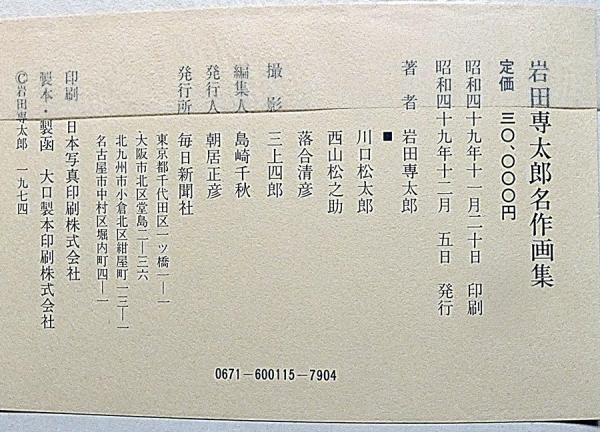 岩田専太郎名作画集
定価 三〇、〇〇〇円
昭和四十九年十一月二十日 印刷
昭和四十九年十二月 五日 発行
著者 岩田専太郎
■
川口松太郎
西山松之助
落合清彦
撮影 三上四郎
編集人 島崎千秋
発行人 朝居正彦
発行所 毎日新聞社
東京都千代田区一ツ橋一—一
大阪市北区堂島二—三六
北九州市小倉北区紺屋町一三—一
名古屋市中村区堀内町四—一
印刷 日本写真印刷株式会社
製本・製函 大口製本印刷株式会社
©岩田専太郎 一九七四
0671-600115-7904